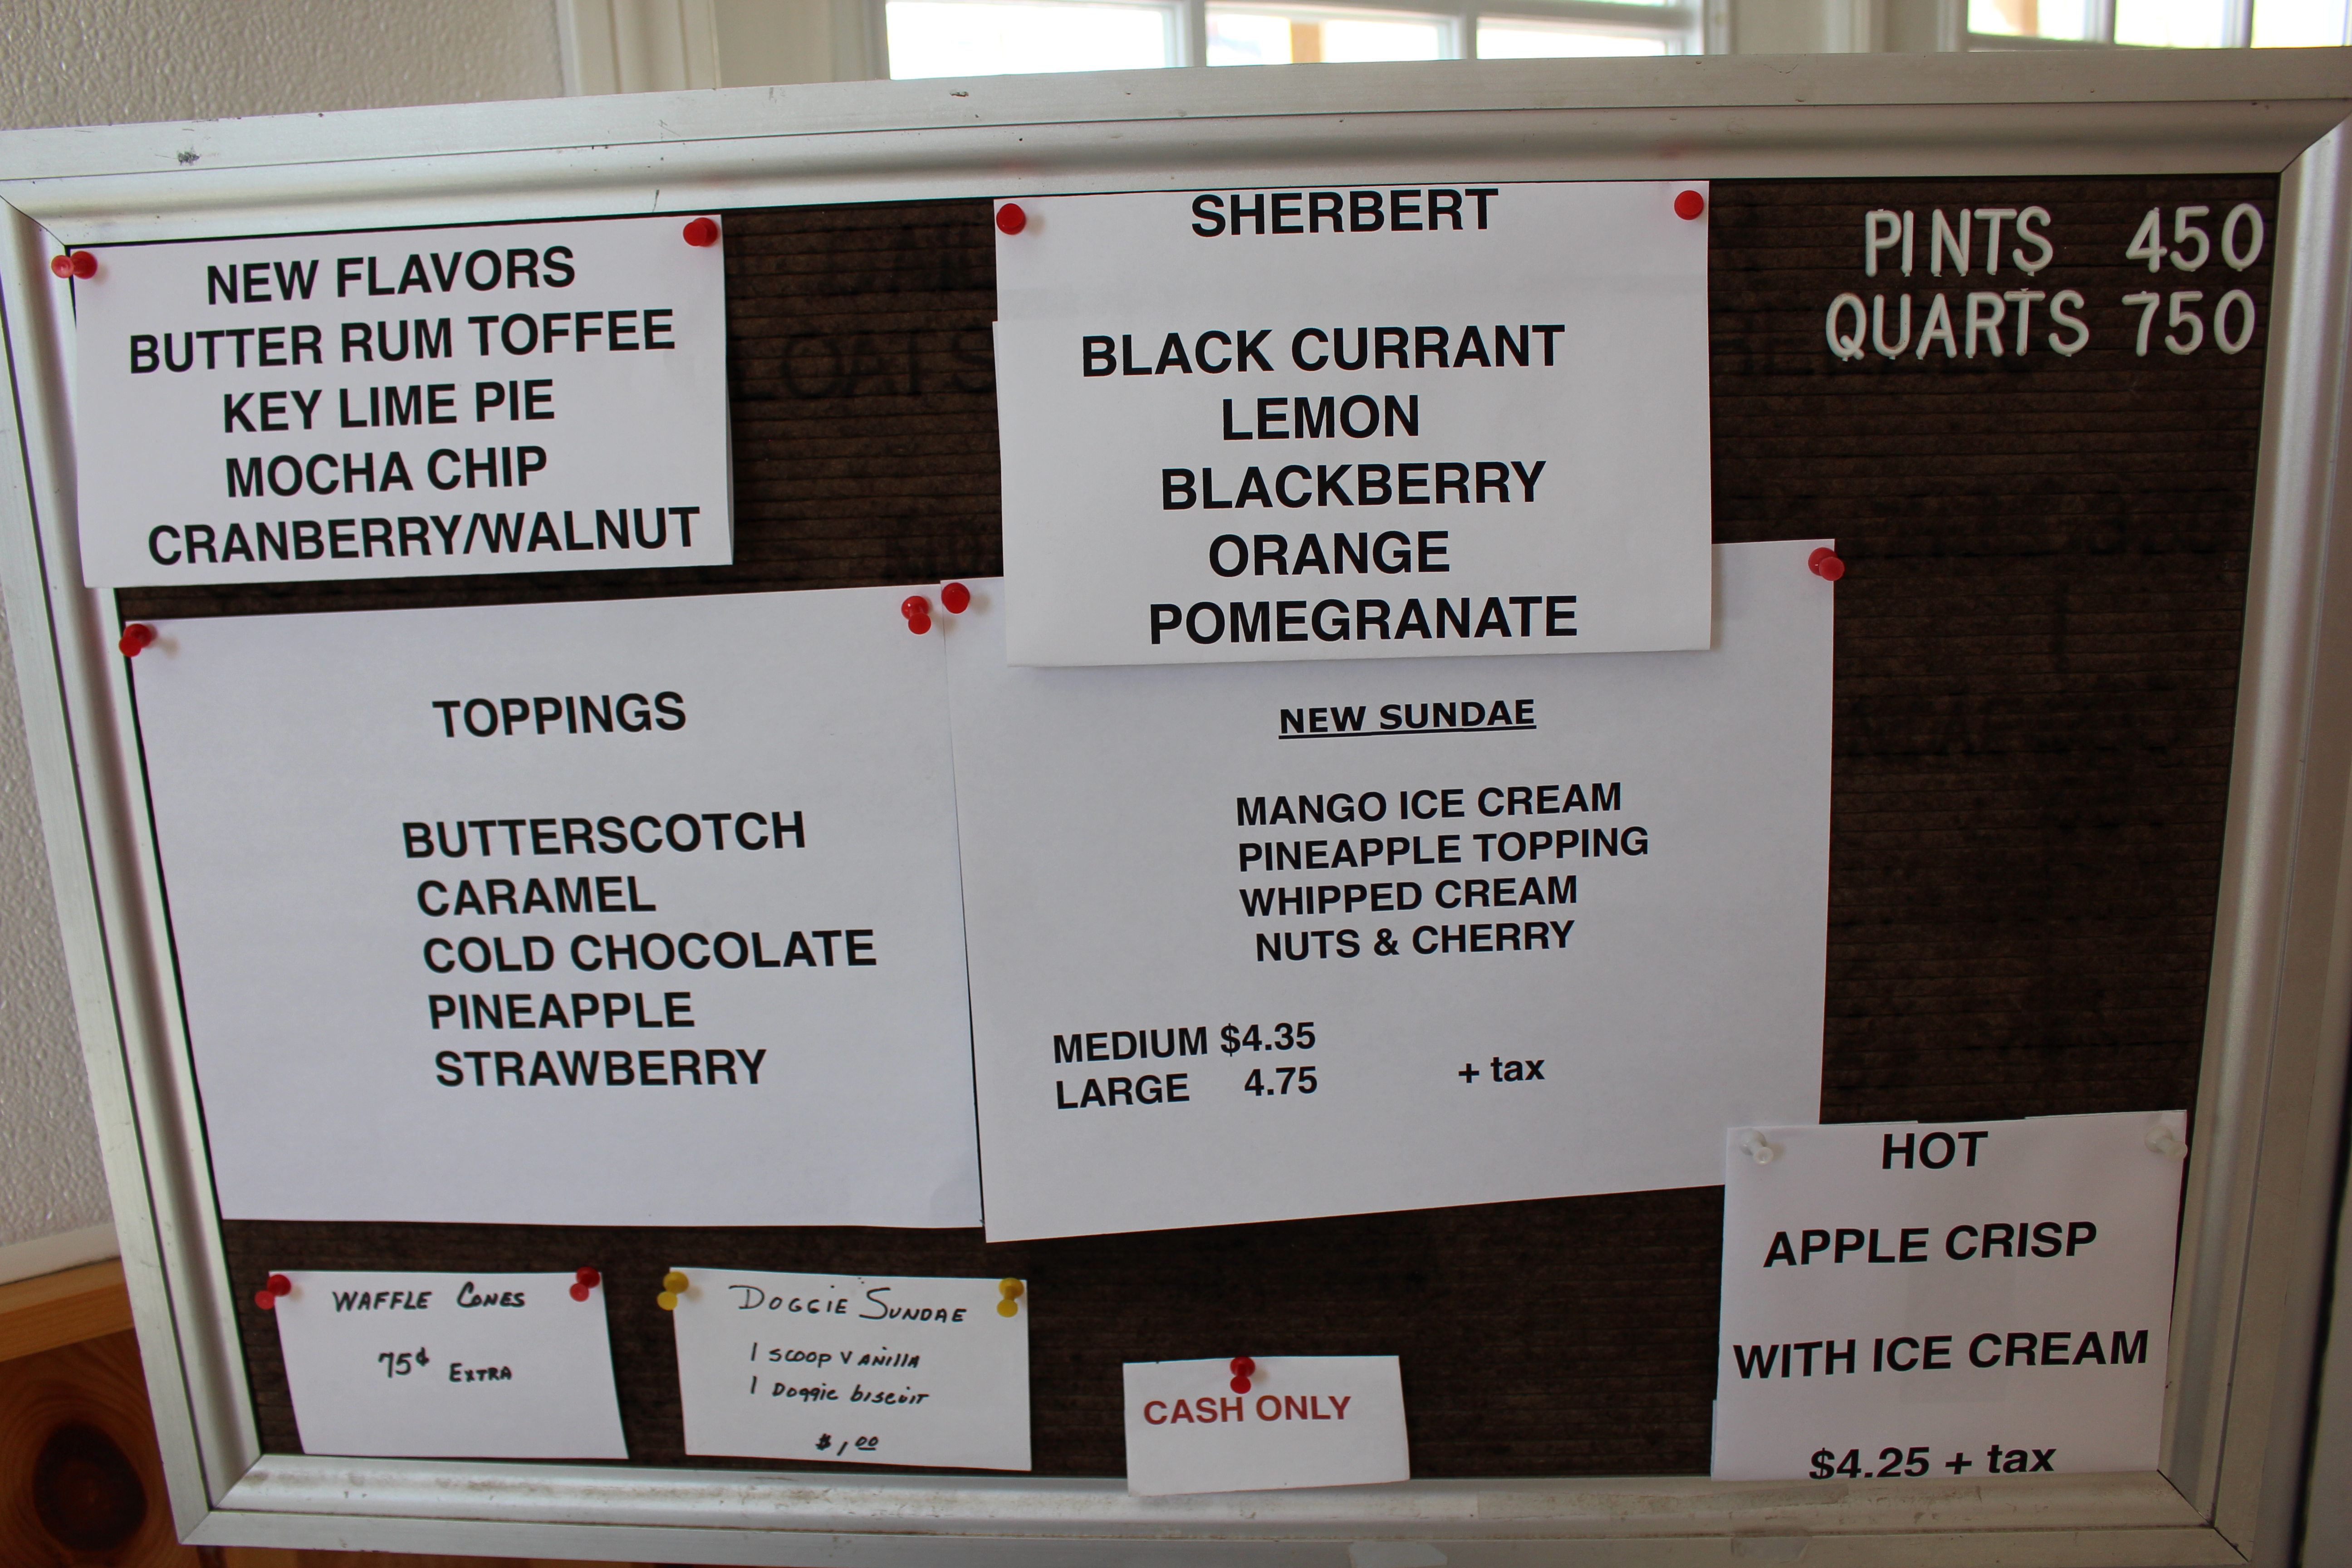 NEW FLAVORS
BUTTER RUM TOFFEE
KEY LIME PIE
MOCHA CHIP
CRANBERRY/WALNUT
SHERBERT
BLACK CURRANT
LEMON
BLACKBERRY
ORANGE
POMEGRANATE
PINTS 450
QUARTS 750
TOPPINGS
BUTTERSCOTCH
CARAMEL
COLD CHOCOLATE
PINEAPPLE
STRAWBERRY
NEW SUNDAE
MANGO ICE CREAM
PINEAPPLE TOPPING
WHIPPED CREAM
NUTS & CHERRY
MEDIUM $4.35
LARGE 4.75 + tax
WAFFLE CONES
75¢ EXTRA
DOGGIE SUNDAE
1 SCOOP VANILLA
1 Doggie biscuit
$1.00
CASH ONLY
HOT
APPLE CRISP
WITH ICE CREAM
$4.25 + tax